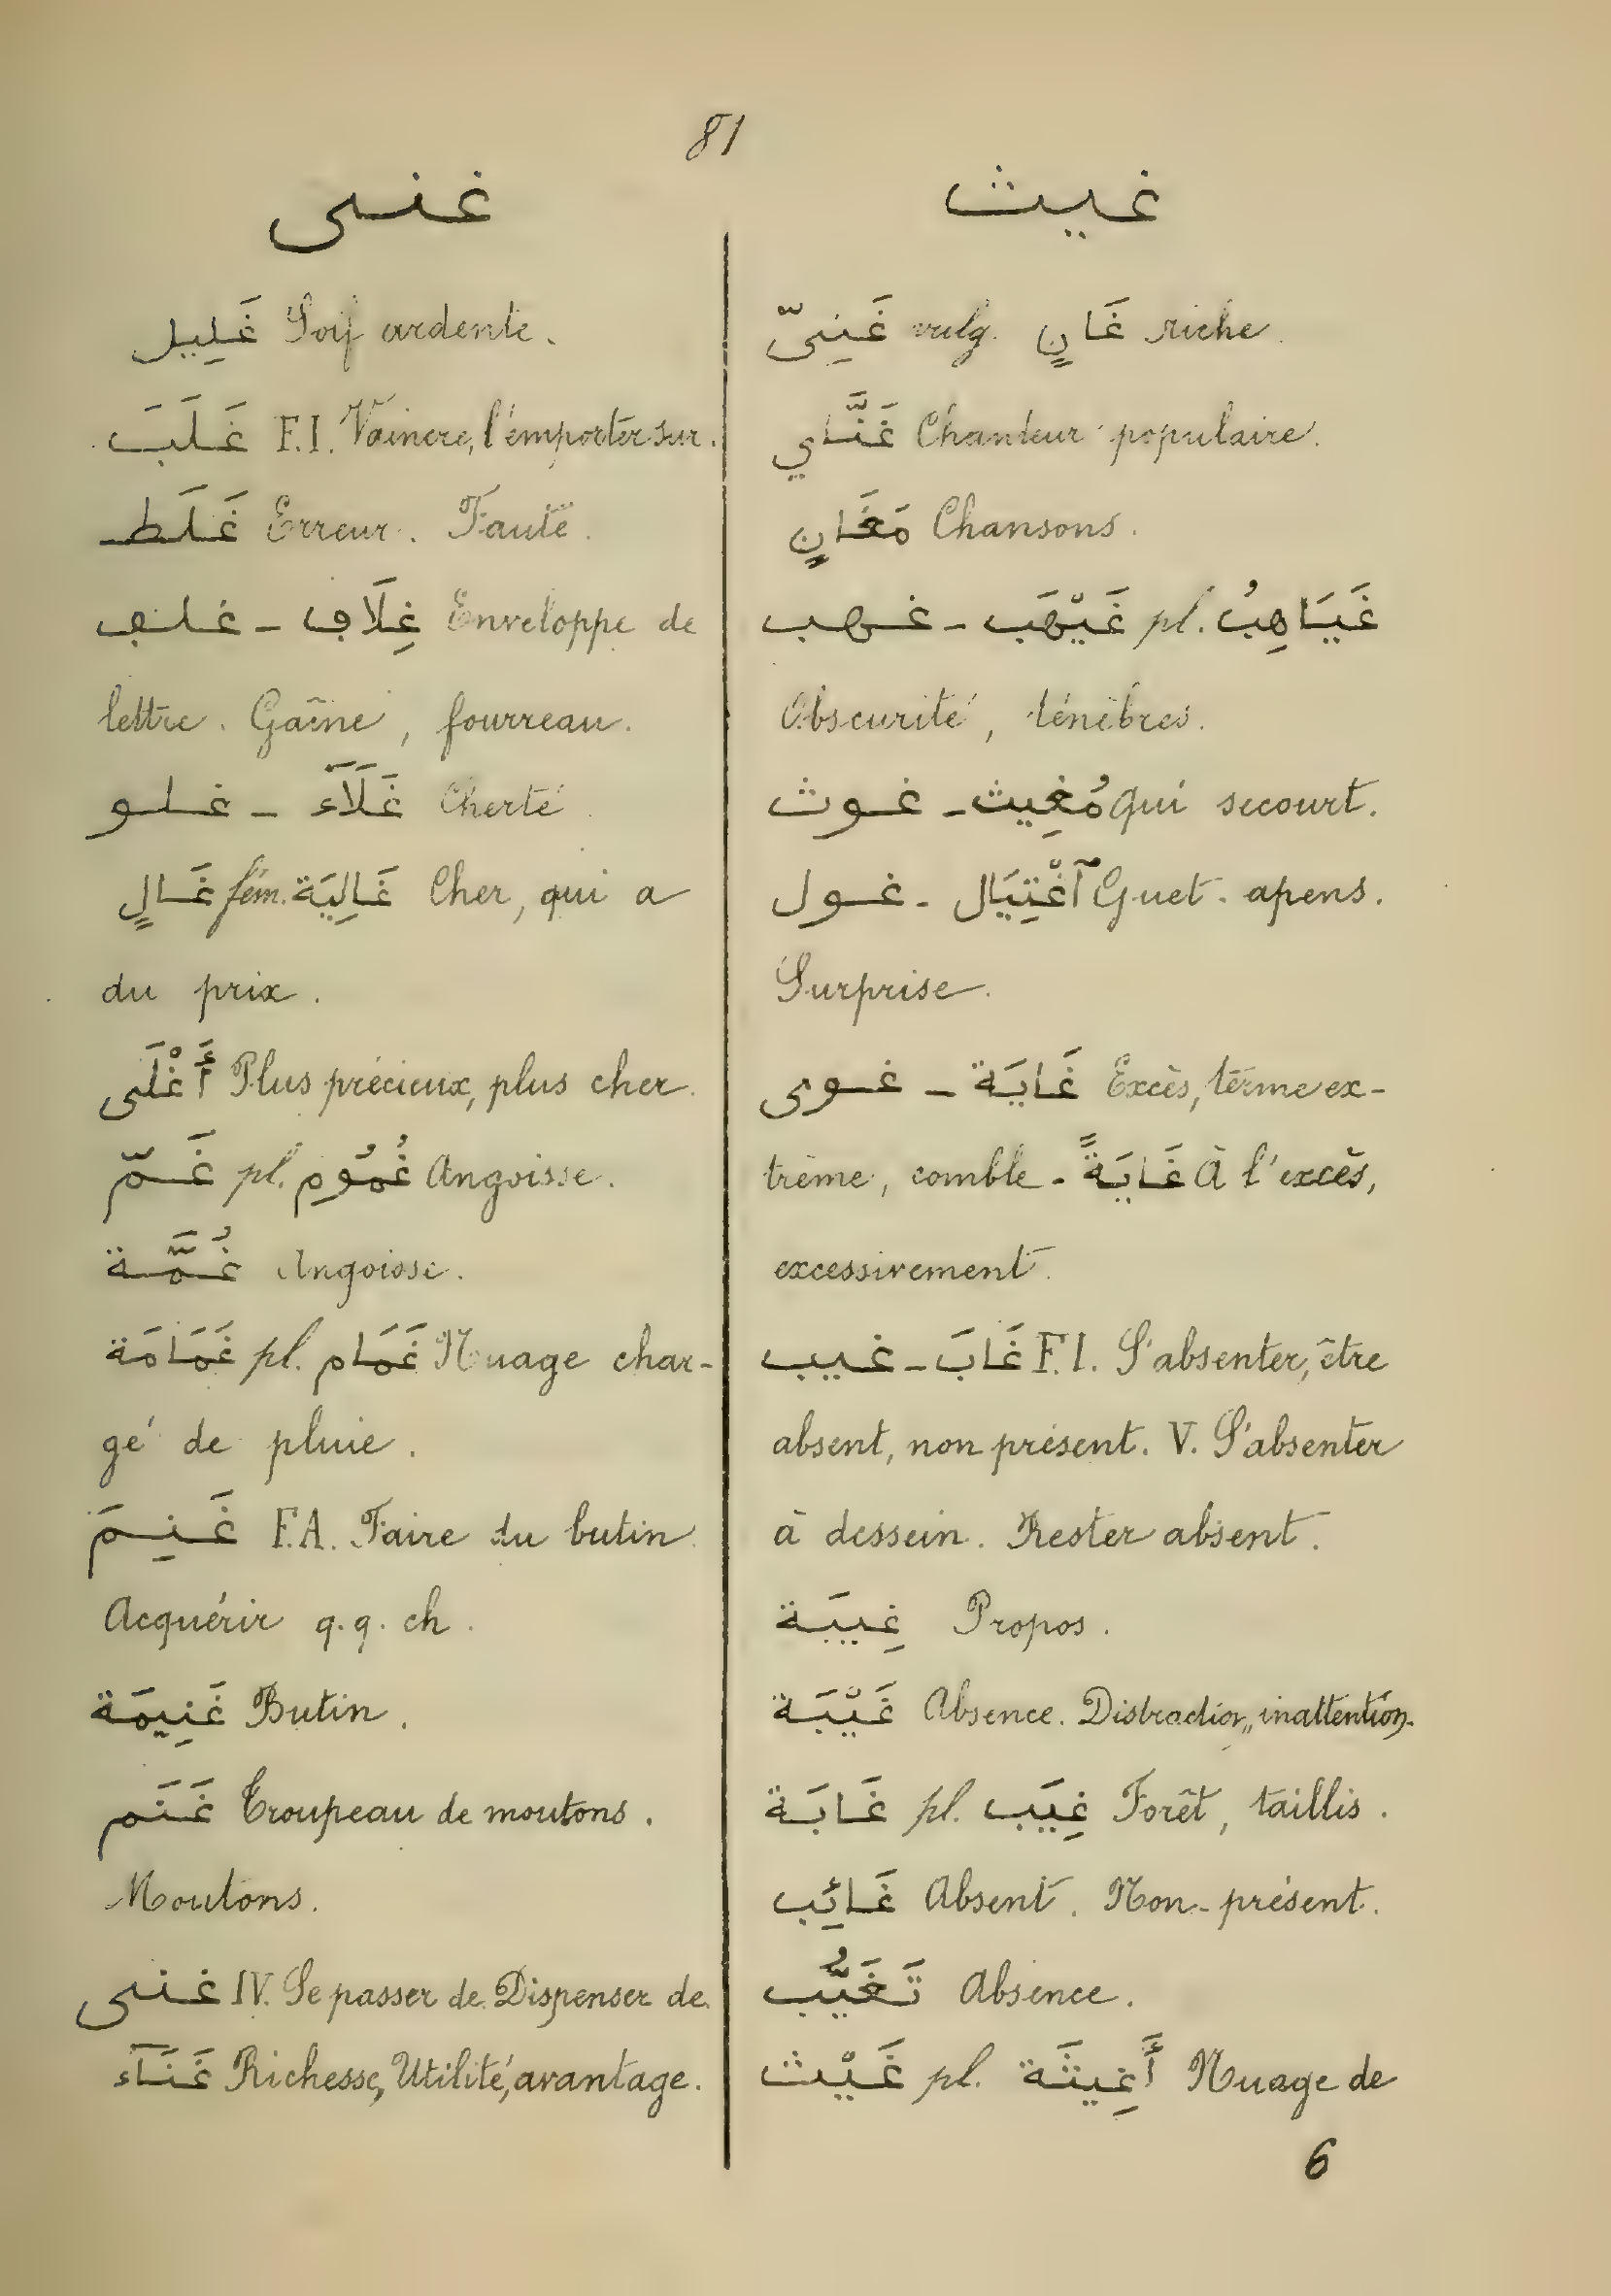 81
غنى
غَلِيل Soif ardente.
غَلَبَ F.I. Vaincre, l'emporter sur.
غَلَط Erreur. Faute.
غلف - غِلَاف Enveloppe de
lettre. Gaîne, fourreau.
غلو - غَلَآء Cherté
غَالٍ fém. غَالِيَة Cher, qui a
du prix.
أَغْلَى Plus précieux, plus cher.
غَمّ pl. غُمُوم Angoisse.
غُمَّة Angoisse.
غَمَامَة pl. غَمَام Nuage char-
gé de pluie.
غَنِمَ F.A. Faire du butin.
Acquérir q.q. ch.
غَنِيمَة Butin.
غَنَم Troupeau de moutons.
Moutons.
غنى IV. Se passer de. Dispenser de.
غَنَآء Richesse, Utilité, avantage.
غيث
غَنِىّ vulg. غَانٍ riche.
غَنَّاي Chanteur populaire.
مَغَانٍ Chansons.
غهب - غَيْهَب pl. غَيَاهِبُ
Obscurité, ténèbres.
غوث - مُغِيث qui secourt.
غول - آغْتِيَال Guet-apens.
Surprise.
غوى - غَايَة Excès, terme ex-
trême, comble - غَايَةً À l'excès,
excessivement.
غيب - غَابَ F.I. S'absenter, être
absent, non présent. V. S'absenter
à dessein. Rester absent.
غِيبَة Propos.
غَيْبَة Absence. Distraction, inattention.
غَابَة pl. غِيَب Forêt, taillis.
غَائِب Absent. Non-présent.
تَغَيُّب Absence.
غَيْث pl. أَغِيثَة Nuage de
6